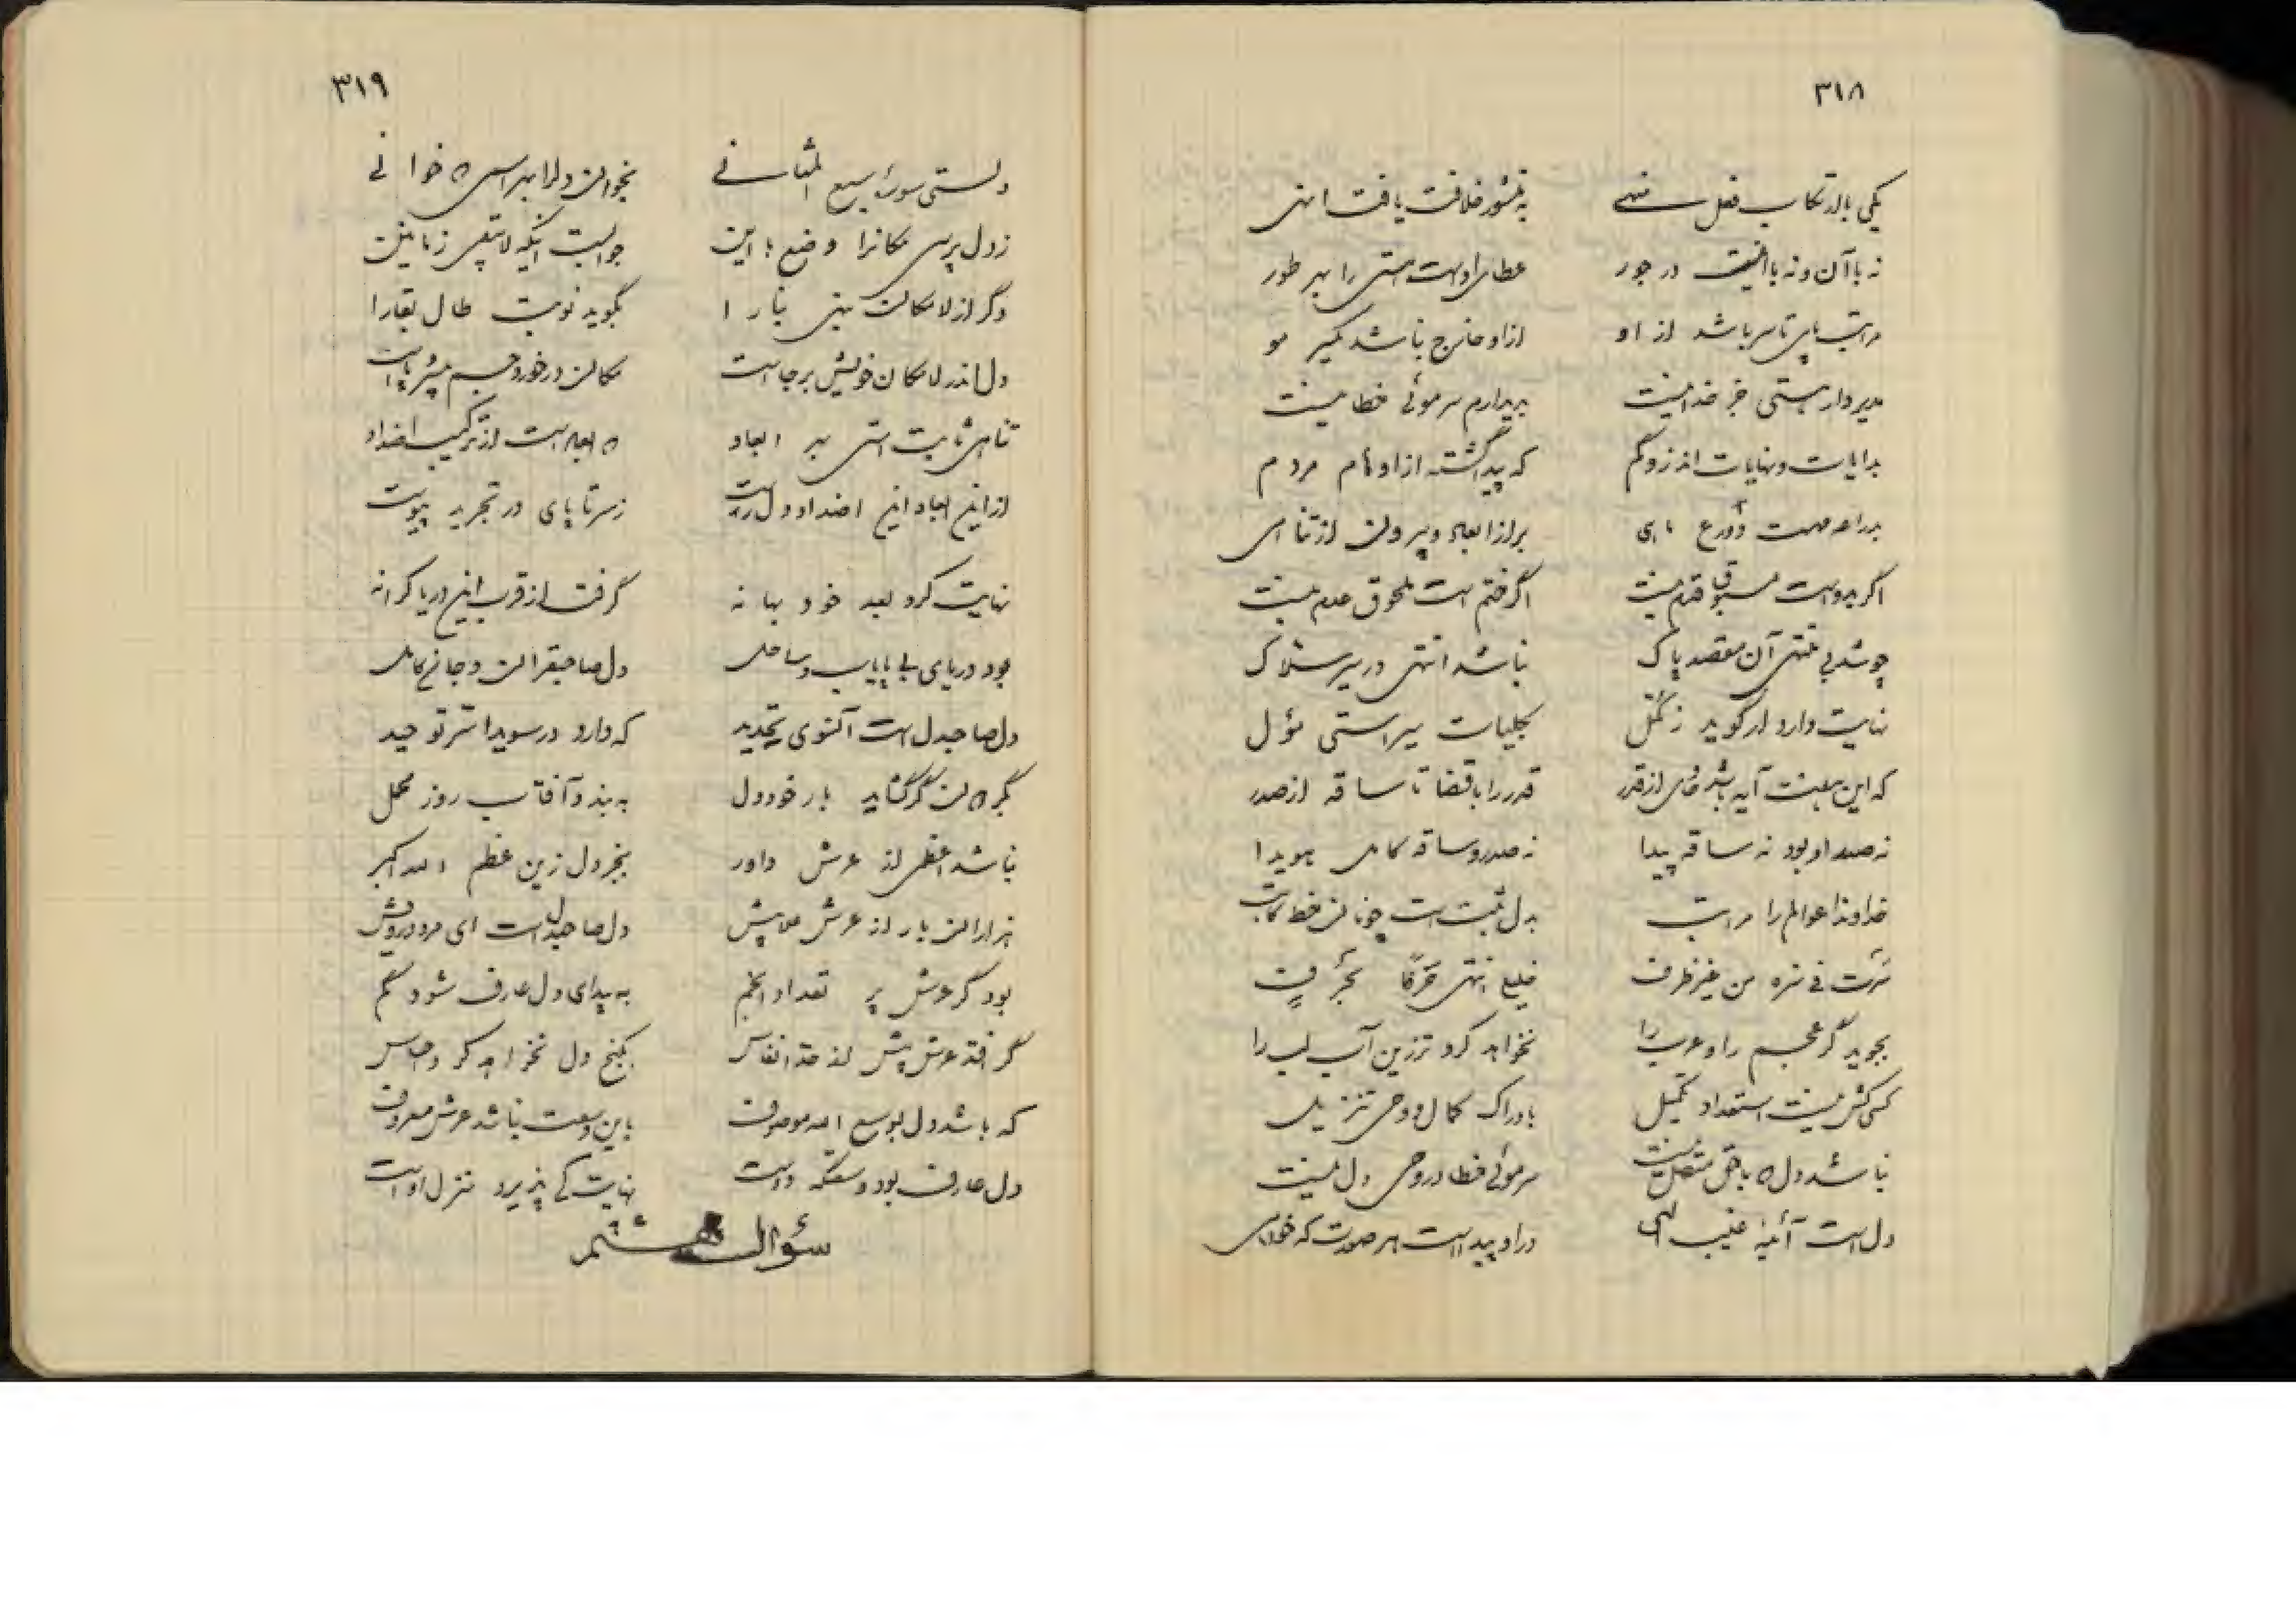 ۳۱۸
یکی با ارتکاب فعل منهی به منشور خلافت یافت انهی
نه با آن و نه با اینست در جور عطای اوست هستی را بهر طور
مراتب پای تا سر باشد از او از او خارج نباشد یکسر مو
مدیر دار هستی جز خدا نیست سر موئی خطا نیست
بدایات و نهایات اندر او گم که پیدا گشته از او نام مردم
بر از ابعاد و بیرون از تناهی
اگر بدو است مسبوق قدم نیست اگر ختم است ملحوق عدم نیست
چو شد بی منتهی آن مقصد پاک نباشد انتهی در سیر سلاک
نهایت دارد ار گوید ز کمل بکلیات سیر استی مؤل
که این سعت آید از قدر قدر را با قضا تا ساقه از صدر
نه صدر او بود نه ساقه پیدا نه صدر و ساقه کامل هویدا
خداوندا عوالم را مراتب بدل ثبت است چونان خط کاتب
من غیر ظرف
بجوید گر عجم راو عرب را نخواهد کرد تر زین آب لب را
کسی کش نیست استعداد تکمیل بادراک کمال و وحی تنزیل
نباشد دل که با حق متصل نیست سر موئی خطا در وحی دل نیست
دل است آئینه غیب الهی در او پیداست هر صورت که خواهی
۳۱۹
دلستی سورهٔ سبع المثانی بخوان دل را بهر اسمی که خوانی
ز دل پرسی مکانرا وضع با این جوابت اینکه لا یبقی زمانین
وگر از لامکان بینی بنا را بگوید نوبت طال بقا را
دل اندر لامکان خویش برجاست مکان در خورد جسم
تناهی ثابت استی بر ابعاد که ابعاد است از ترکیب اضداد
از این ابعاد این اضداد دل رست ز سر تا پای در تجرید پیوست
نهایت کرد بعد خود بهانه گرفت از قرب این دریا کرانه
بود دریای بی پایاب و ساحل دل صاحبقران و جان کامل
دل صاحبدل است آنسوی تحدید که دارد در سویدا سر توحید
بگردان گر گشاید بار خود دل به بندد آفتاب روز محمل
نباشد اعظمی از عرش داور بجز دل زین عظم الله اکبر
هزاران بار از عرش علا بیش دل صاحبدل است ای مرد درویش
بود گر عرش پر تعداد انجم به پیدای دل عارف شود گم
گر افتد عرش بیش از حد انفاس بکنج دل نخواهد کرد احساس
که باشد دل بوسع الله موصوف باین وسعت نباشد عرش معروف
دل عارف بود وسعتگه دوست نهایت کی پذیرد منزل اوست
سؤال هشتم